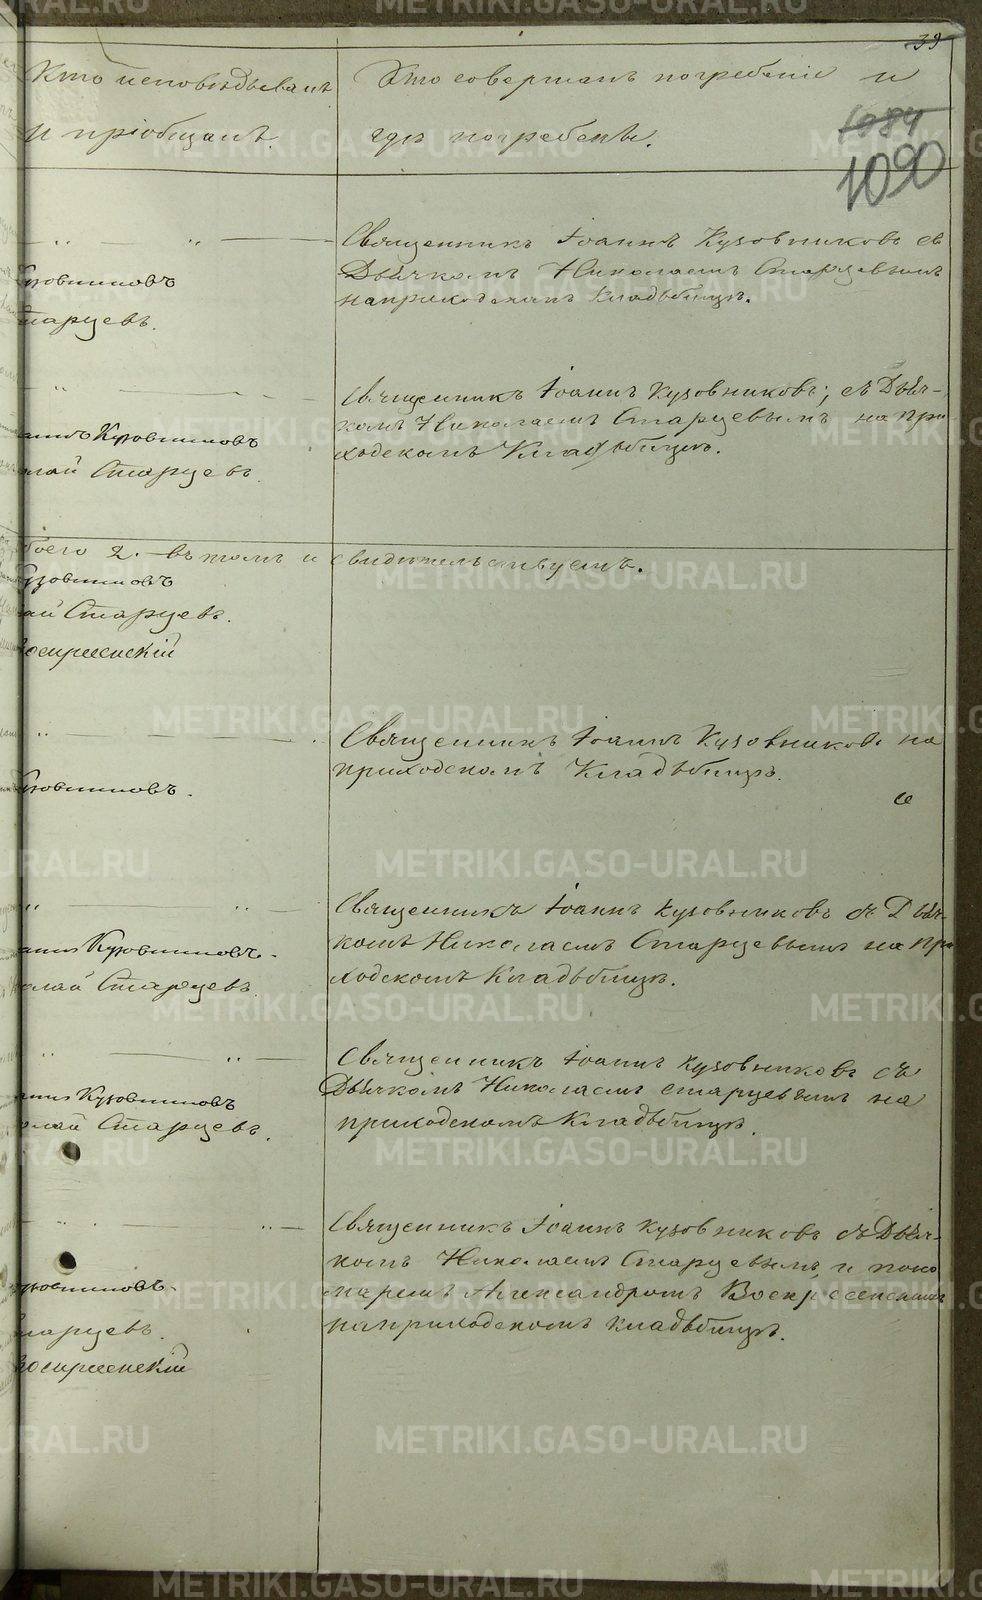 39
Кто исповѣдывалъ
и пріобщалъ.
Кто совершалъ погребеніе и
гдѣ погребены.
1084
1090
Священникъ Іоаннъ Кузовниковъ съ
Дьячкомъ Николаемъ Старцевымъ
на приходскомъ Кладьбищѣ.
Кузовниковъ
Старцевъ.
Священникъ Іоаннъ Кузовниковъ; съ Дьяч-
комъ Николаемъ Старцевымъ на при
ходскомъ Кладьбищѣ.
аннъ Кузовниковъ
олай Старцевъ.
боего 2. въ томъ и свидѣтельствуемъ.
узовниковъ
ай Старцевъ.
Воскресенскій
Священникъ Іоаннъ Кузовниковъ на
приходскомъ Кладьбищѣ.
Кузовниковъ.
Священникъ Іоаннъ Кузовниковъ съ Дьяч-
комъ Николаемъ Старцевымъ на при
ходскомъ Кладьбищѣ.
аннъ Кузовниковъ.
олай Старцевъ
Священникъ Іоаннъ Кузовниковъ съ
Дьячкомъ Николаемъ Старцевымъ на
приходскомъ Кладьбищѣ.
аннъ Кузовниковъ
олай Старцевъ.
Священникъ Іоаннъ Кузовниковъ съ Дьяч-
комъ Николаемъ Старцевымъ, и поно
маремъ Александромъ Воскресенскимъ
на приходскомъ кладьбищѣ.
узовниковъ.
Старцевъ.
Воскресенскій
METRIKI.GASO-URAL.RU